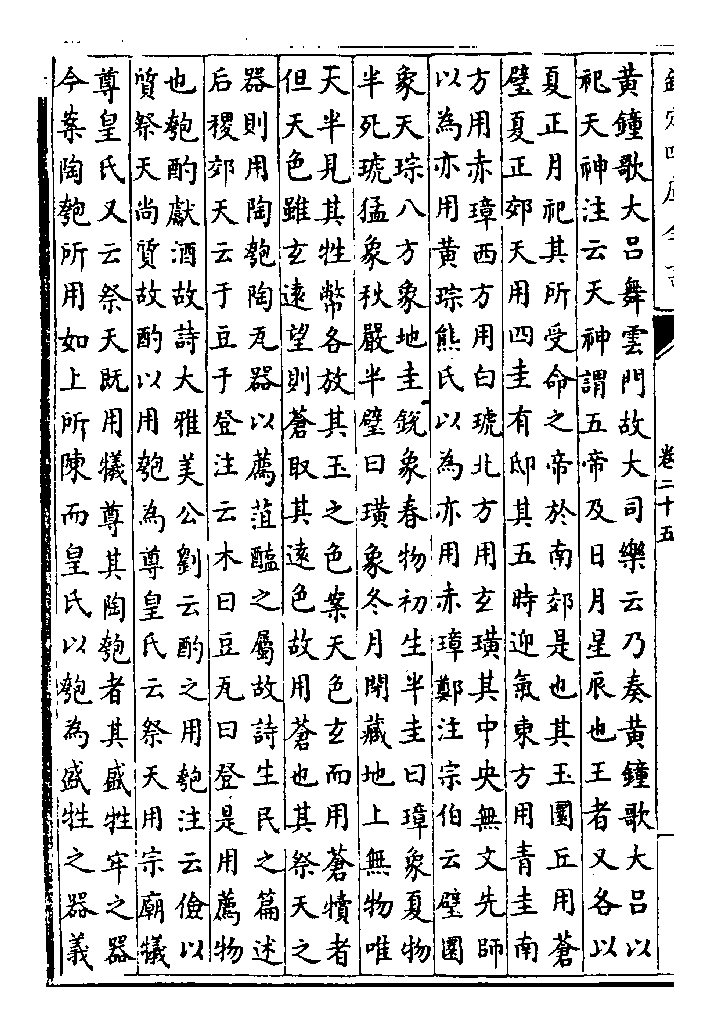 欽定四庫全書
卷二十五
黃鐘歌大呂舞雲門故大司樂云乃奏黃鐘歌大呂以
祀天神注云天神謂五帝及日月星辰也王者又各以
夏正月祀其所受命之帝於南郊是也其玉圜丘用蒼
璧夏正郊天用四圭有邸其五時迎氣東方用青圭南
方用赤璋西方用白琥北方用玄璜其中央無文先師
以為亦用黃琮熊氏以為亦用赤璋鄭注宗伯云璧圜
象天琮八方象地圭銳象春物初生半圭曰璋象夏物
半死琥猛象秋嚴半璧曰璜象冬月閉藏地上無物唯
天半見其牲幣各放其玉之色案天色玄而用蒼犢者
但天色雖玄遠望則蒼取其遠色故用蒼也其祭天之
器則用陶匏陶瓦器以薦菹醢之屬故詩生民之篇述
后稷郊天云于豆于登注云木曰豆瓦曰登是用薦物
也匏酌獻酒故詩大雅美公劉云酌之用匏注云儉以
質祭天尚質故酌以用匏為尊皇氏云祭天用宗廟犧
尊皇氏又云祭天既用犧尊其陶匏者其盛牲牢之器
今案陶匏所用如上所陳而皇氏以匏為盛牲之器義